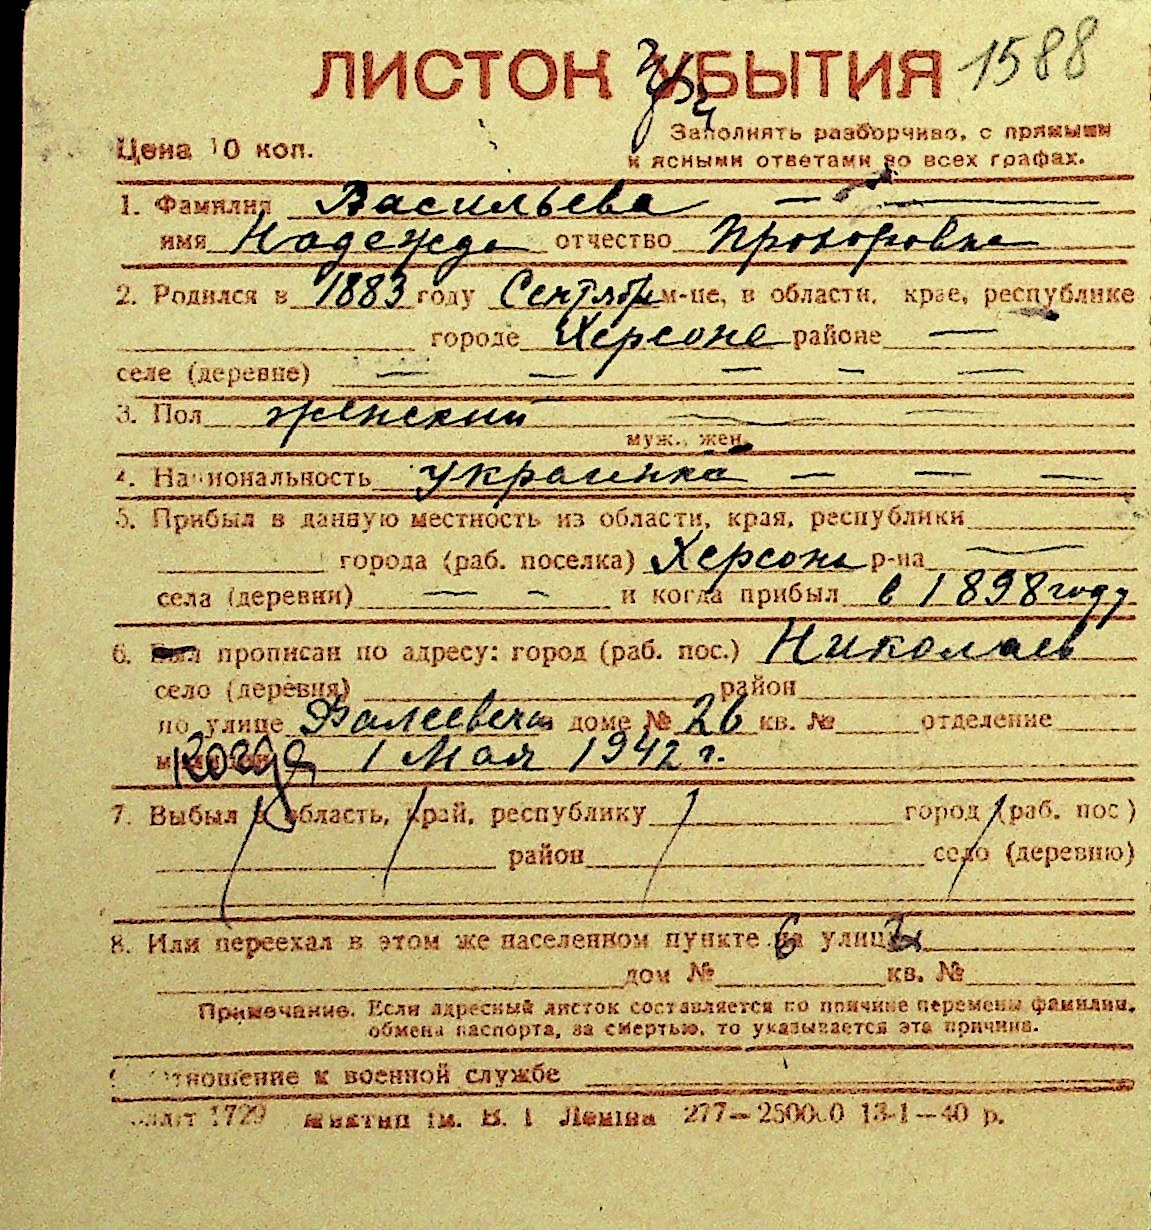 ЛИСТОН УБЫТИЯ 1588
Цена 10 коп.
Заполнять разборчиво, с прямыми
и ясными ответами во всех графах.
1. Фамилия Васильева — — —
имя Надежда отчество Прохоровна
2. Родился в 1883 году Сентябр м-це, в области, крае, республике
городе Херсоне районе —
селе (деревне) — — — — —
3. Пол женский
муж., жен.
4. Национальность украинка — — —
5. Прибыл в данную местность из области, края, республики
города (раб. поселка) Херсона р-на —
села (деревни) — - и когда прибыл в 1898 году
6. Был прописан по адресу: город (раб. пос.) Николаев
село (деревня) район
по улице Фалеевская доме № 26 кв. № отделение
когда 1 Мая 1942 г.
7. Выбыл в область, край, республику город (раб. пос)
район село (деревню)
8. Или переехал в этом же населенном пункте на улицу
дом № кв. №
Примечание. Если адресный листок составляется по причине перемены фамилии,
обмена паспорта, за смертью, то указывается эта причина.
отношение к военной службе
1729 им. В. І Леніна 277—250000 13-1—40 р.